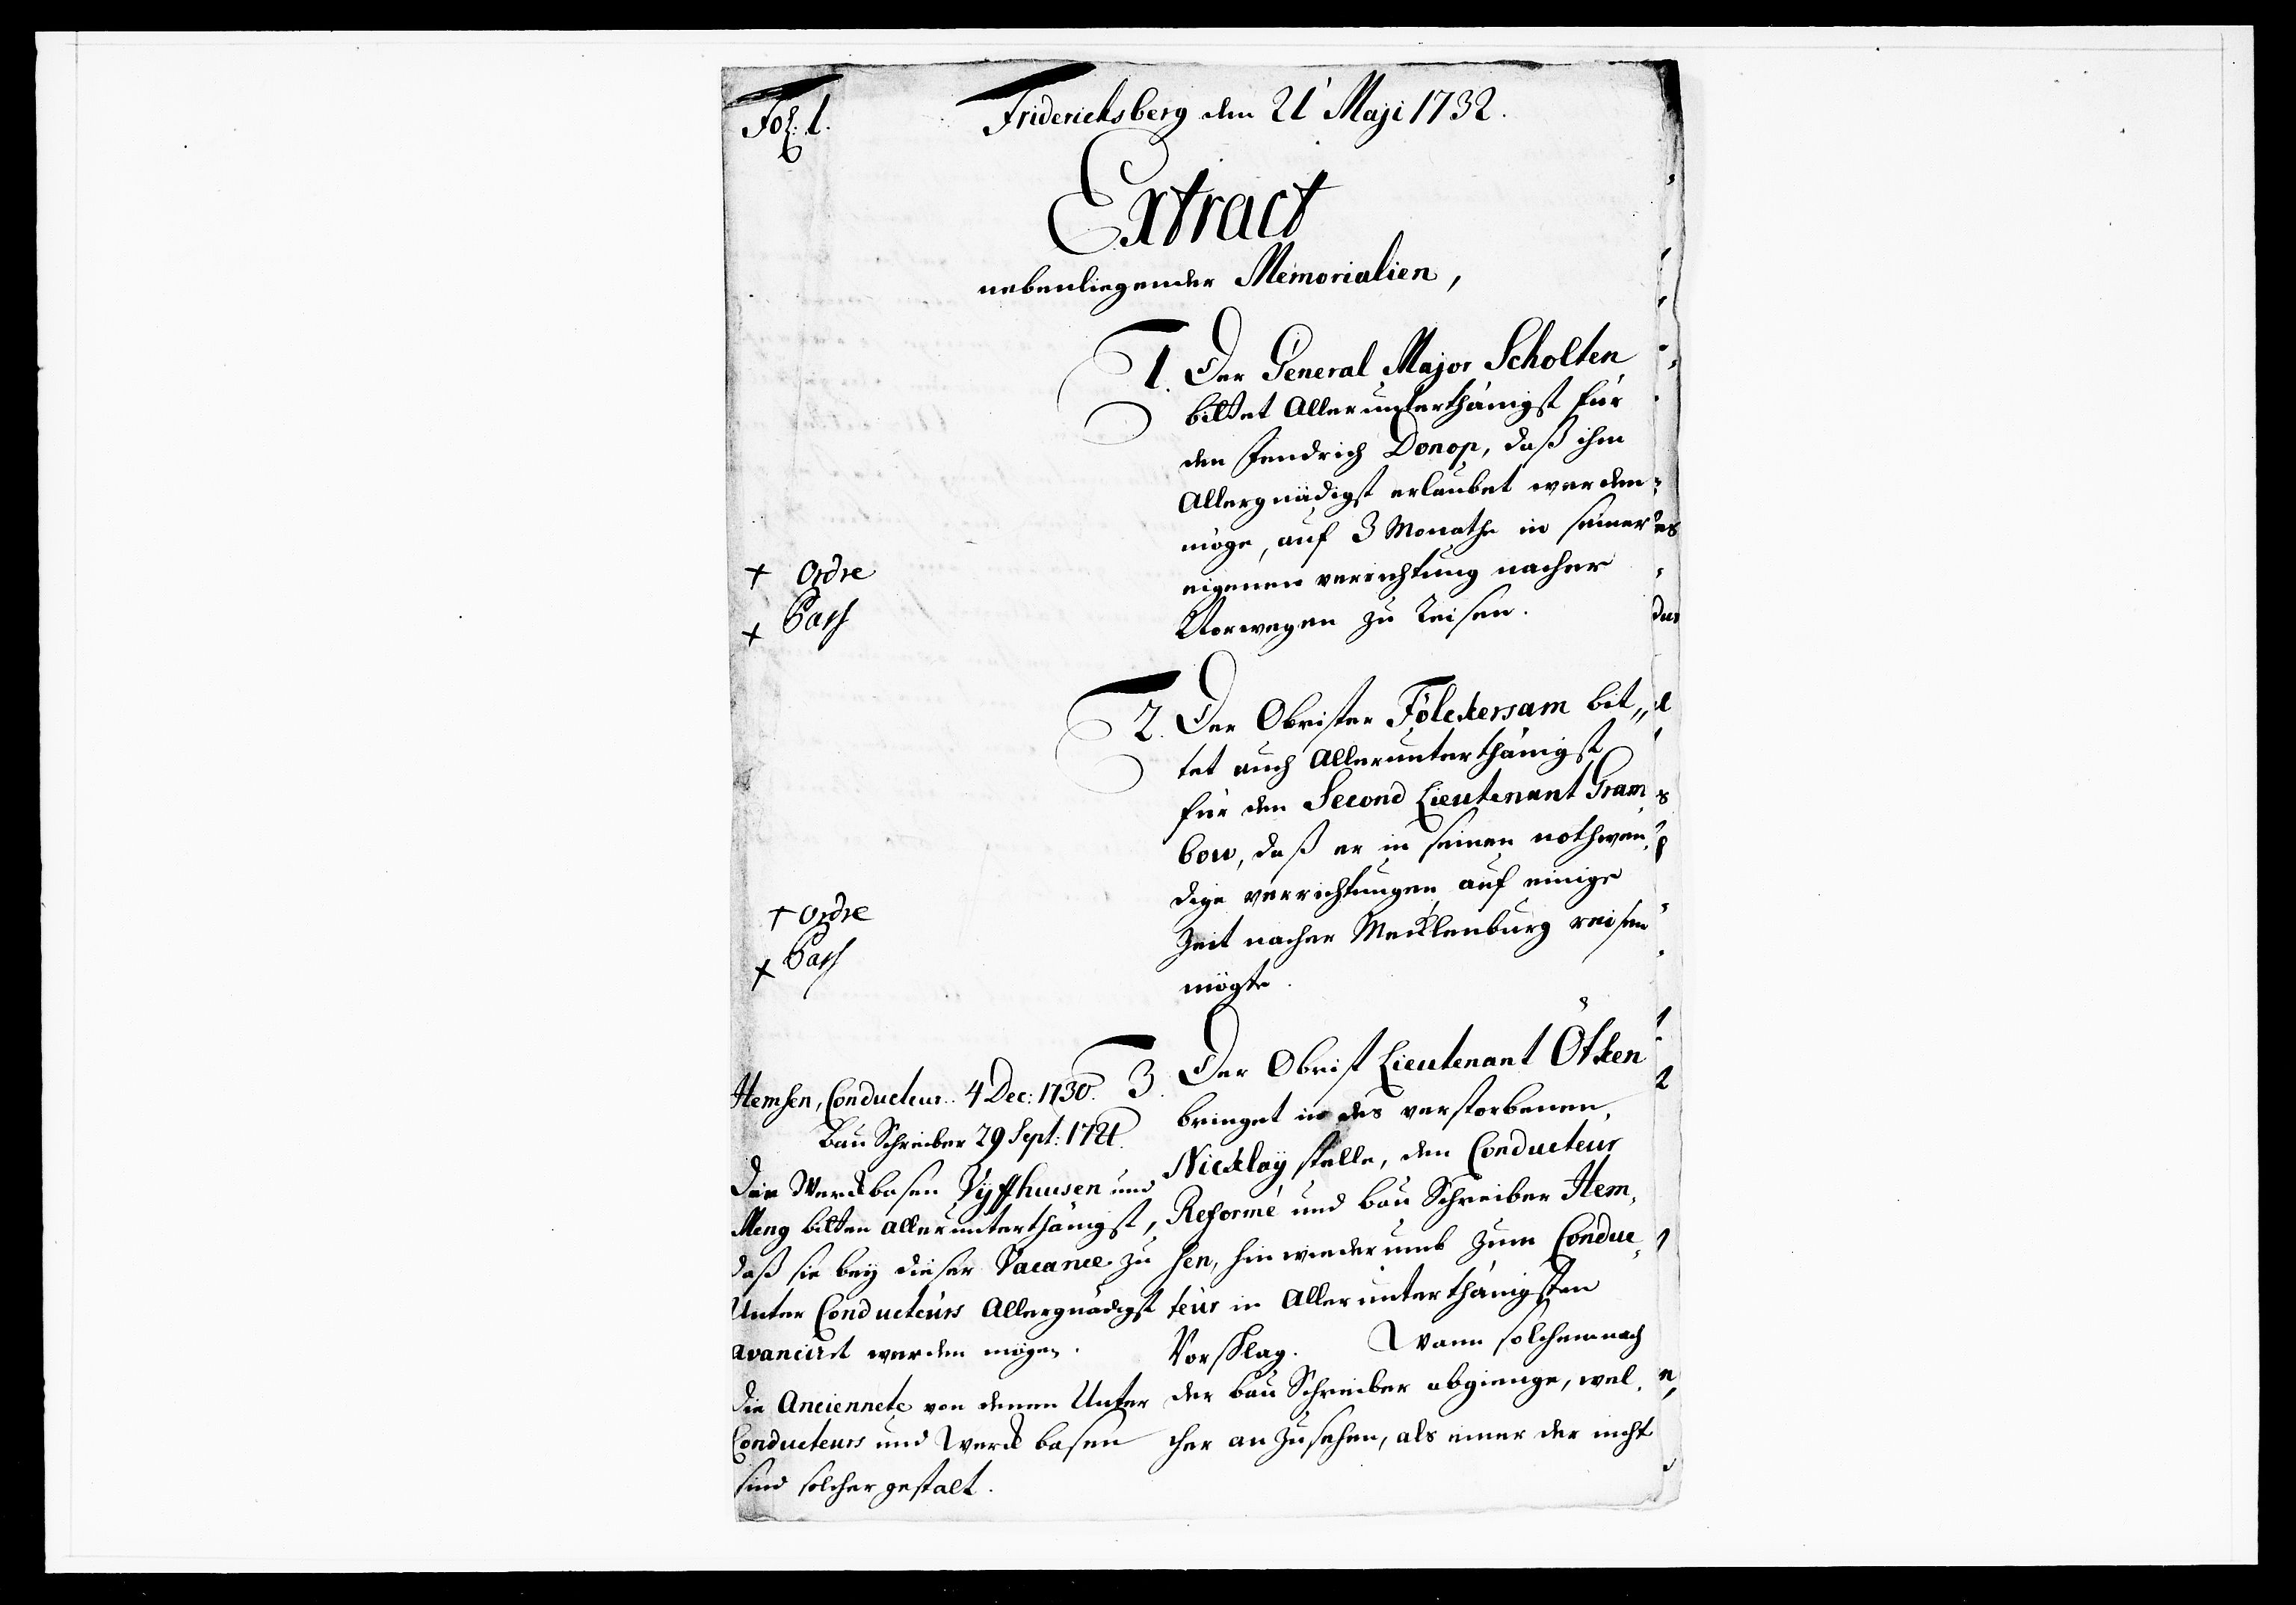 Fol: 1.
Friderichsberg den 21' Maji 1732.
Extract
nebenliegender Memorialien,
1. Der General Major Scholten
bittet Allerunterthänigst für
den Fendrich Donop, daß ihm
Allergnädigst erlaubet werden
möge, auf 3 Monathe in seiner
eigenen verrichtung nacher
Norwegen zu Reisen.
+ Ordre
+ Pass
2. Der Obrister Fölckersam bit„
tet auch Allerunterthänigst
für den Second Lieutenant Gram
bow, daß er in seinen nothwen„
dige verrichtungen auf einige
Zeit nacher Mecklenburg reisen
mögte.
+ Ordre
+ Pass
3. Der Obrist Lieutenant Ötken
bringet in des verstorbenen
Nicklaÿ stelle, den Conducteur
Reformé und bau Schreiber Hem„
sen, hinwiederumb zum Conduc„
teur in Allerunterthänigsten
Vorschlag. Wann solchemnach
der bau Schreiber abgienge, wel„
cher anzusehen, als einer der nicht
Hemsen, Conducteur. 4 Dec: 1730.
Bau Schreiber 29 Sept: 1721.
Die Werckbasen Vijfhuusen und
Meng bitten allerunterthänigst,
daß sie bey dieser Vacance zu
Unter Conducteurs Allergnädigst
avanciret werden mögen.
Die Anciennete von denen Unter
Conducteurs und Werck basen
sind solcher gestalt.